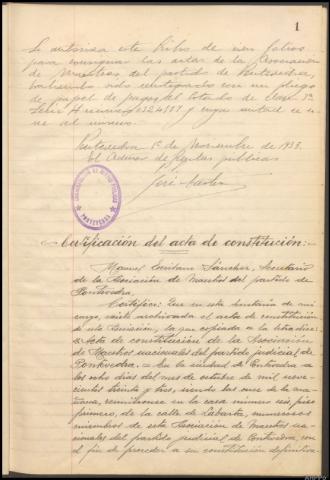 1
Se autoriza este libro de cien folios
para consignar las actas de la Asociación
de Maestros del partido de Pontevedra,
habiendo sido reintegrado con un pliego
de papel de pagos del Estado de clase 7ª
Serie A número
ne del mismo.
Pontevedra 1º de Noviembre de 1933.
El Administrador de Rentas públicas
José
PONTEVEDRA
Certificación del acta de constitución:
Manuel Escribano Sánchez, Secretario
de la Asociación de Maestros del partido de
Pontevedra,
Certifico: Que en esta Secretaría de mi
cargo, existe archivada el acta de constitución
de esta Asociación, la que copiada a la letra dice:
"Acta de constitución de la Asociación
de Maestros nacionales del partido judicial de
Pontevedra. = En la ciudad de Pontevedra a
los ocho días del mes de octubre de mil nove-
cientos treinta y tres, siendo las once de la ma-
ñana, reuniéronse en la casa número seis, piso
primero, de la calle de Labarta, numerosos
miembros de esta Asociación de Maestros na-
cionales del partido judicial de Pontevedra, con
el fin de proceder a su constitución definitiva.